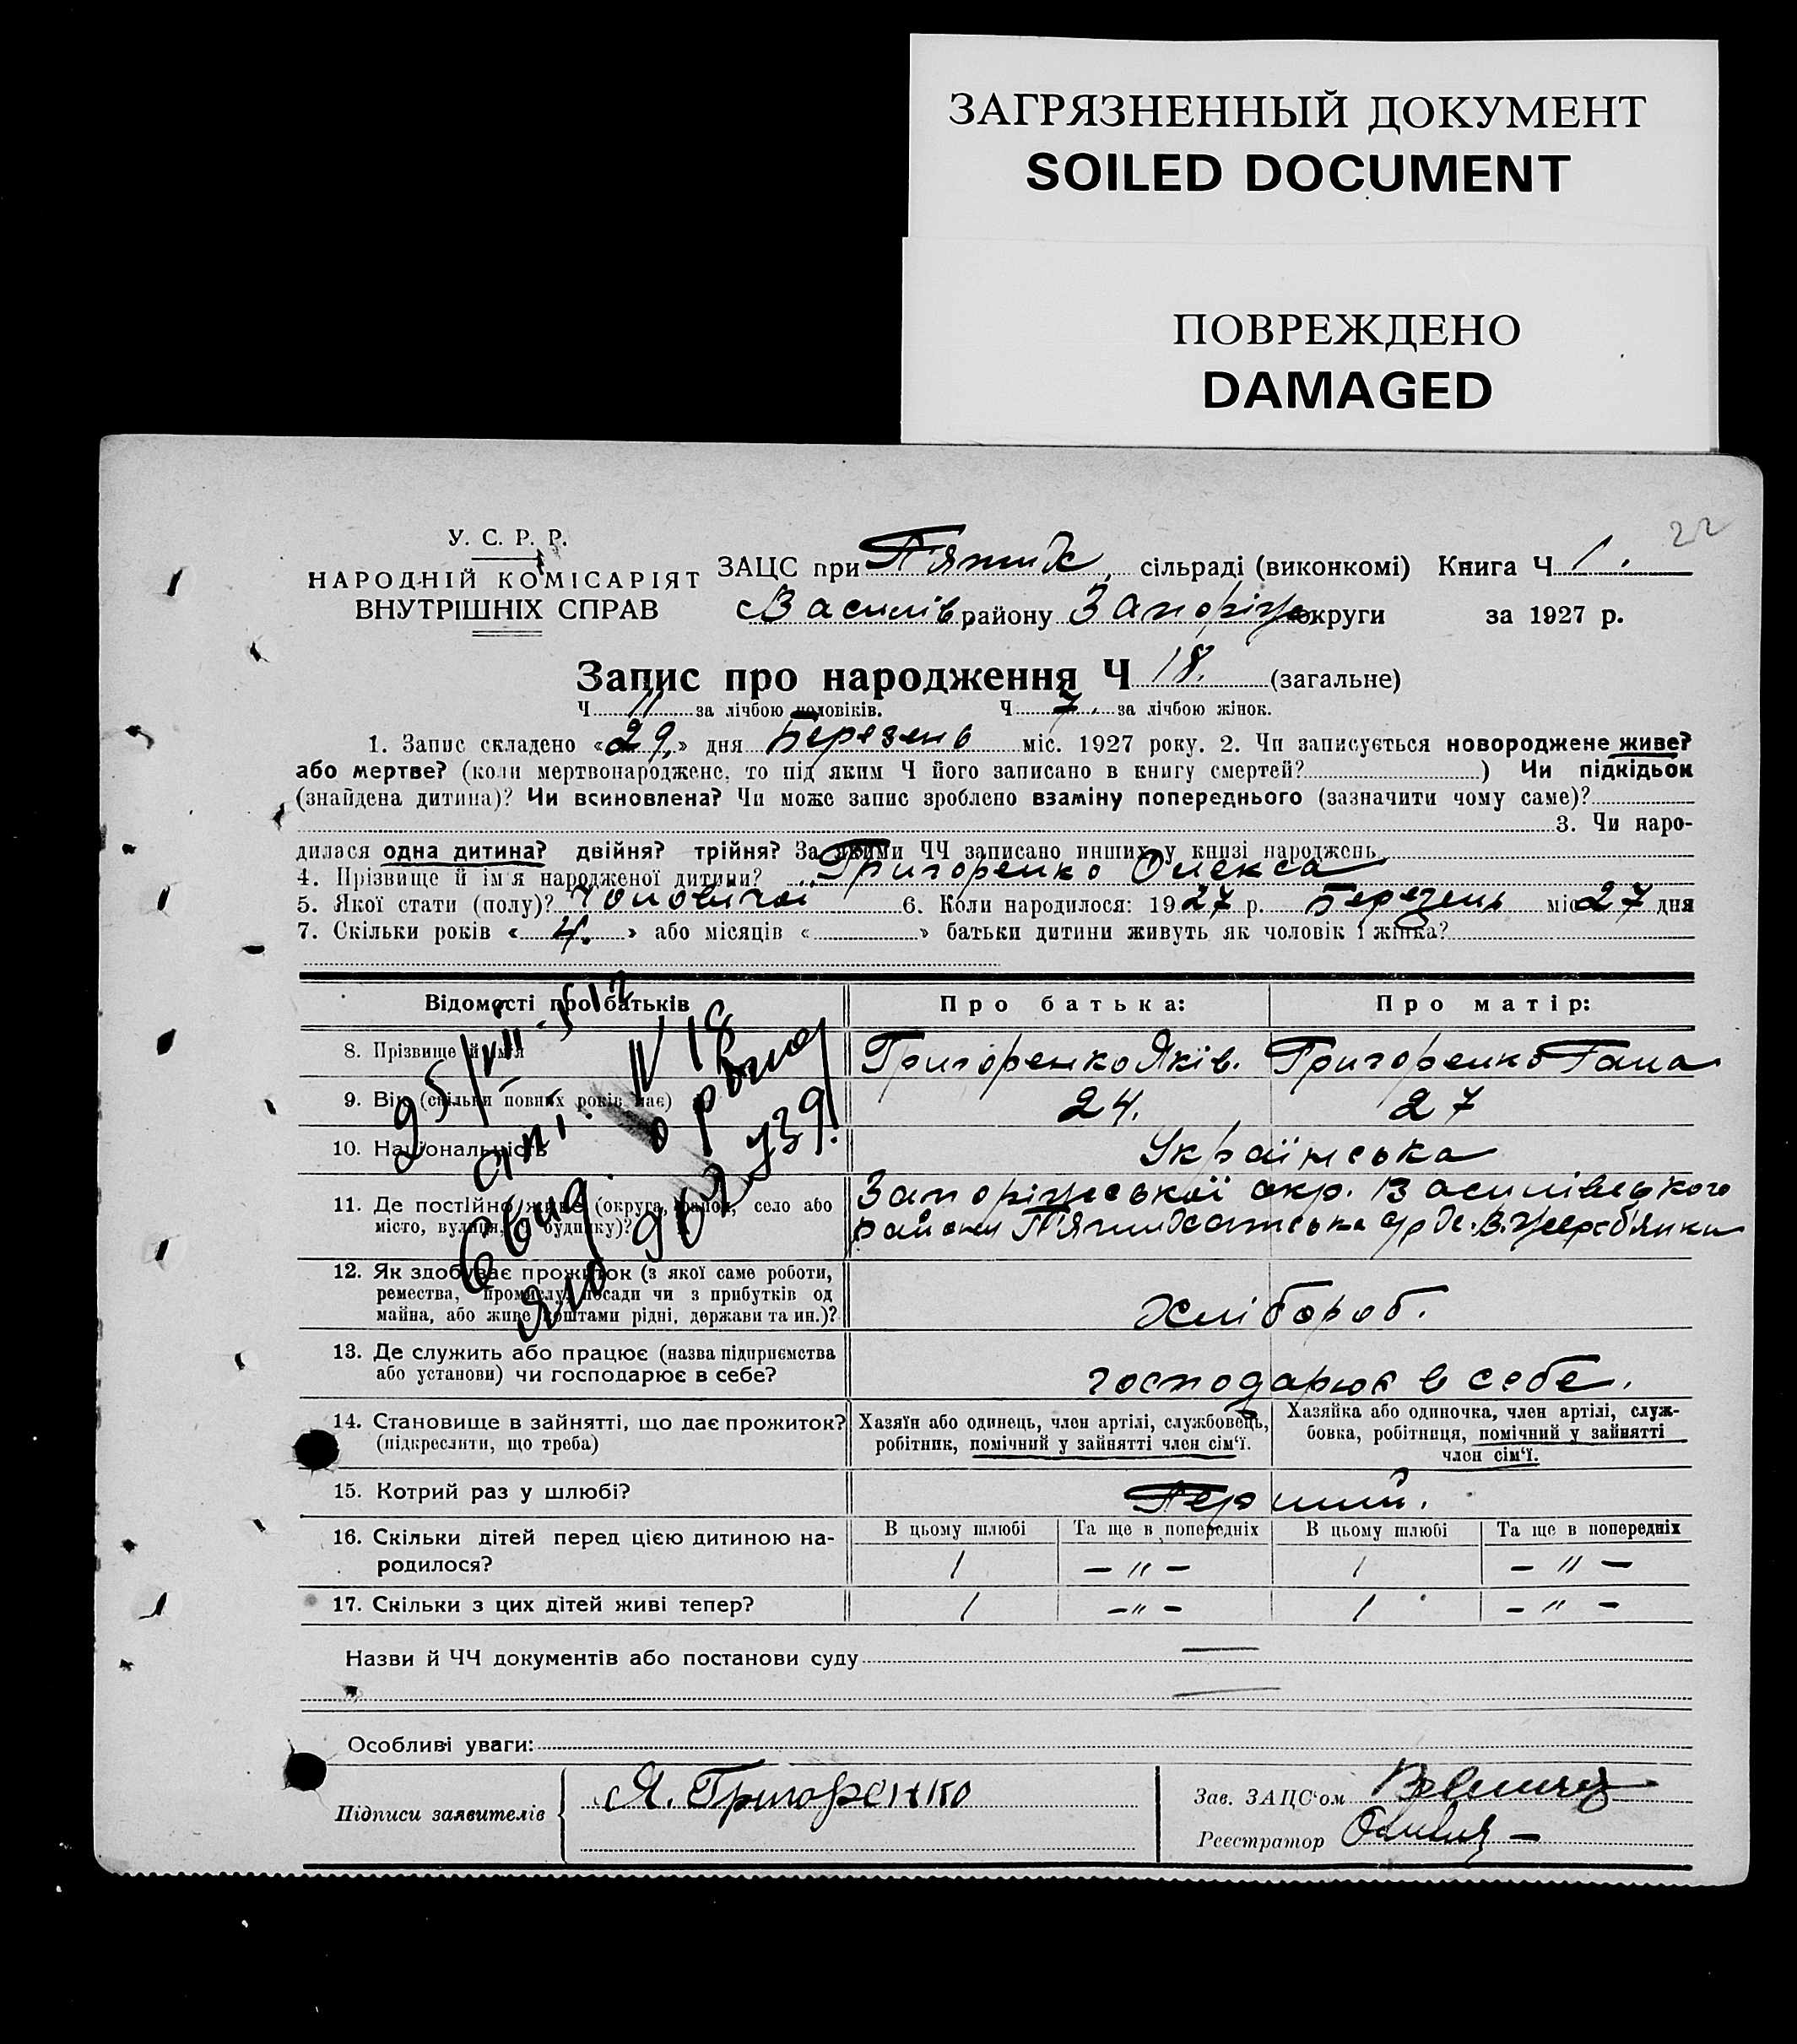 ЗАГРЯЗНЕННЫЙ ДОКУМЕНТ
SOILED DOCUMENT
ПОВРЕЖДЕНО
DAMAGED
22
У. С. Р. Р.
НАРОДНІЙ КОМІСАРІЯТ
ВНУТРІШНІХ СПРАВ
ЗАЦС при П'ятих. сільраді (виконкомі) Книга Ч 1.
Василів району Запоріж округи за 1927 р.
Запис про народження Ч 18. (загальне)
Ч 11 за лічбою чоловіків. Ч 7. за лічбою жінок.
1. Запис складено «29.» дня Березень міс. 1927 року. 2. Чи записується новороджене живе?
або мертве? (коли мертвонароджене, то під яким Ч його записано в книгу смертей? ) Чи підкідьок
(знайдена дитина)? Чи всиновлена? Чи може запис зроблено взаміну попереднього (зазначити чому саме)?
3. Чи наро-
дилася одна дитина? двійня? трійня? За якими ЧЧ записано инших у книзі народжень
4. Прізвище й ім'я народженої дитини? Григоренко Олекса
5. Якої стати (полу)? Чоловіча 6. Коли народилося: 1927 р. Березень міс 27 дня
7. Скільки років «4.» або місяців « » батьки дитини живуть як чоловік і жінка?
Відомості про батьків Про батька: Про матір:
8. Прізвище й ім'я Григоренко Яків. Григоренко Гана
9. Вік (скільки повних років має) 24. 27
10. Національність Українська
11. Де постійно живе (округа, район, село або
місто, вулиця, будинку)?
Запоріжської окр. Василівського
району П'ятихатська с/р
12. Як здобуває прожиток (з якої саме роботи,
ремества, промислу, посади чи з прибутків од
майна, або живе коштами рідні, держави та ин.)?
Хлібороб.
13. Де служить або працює (назва підприємства
або установи) чи господарює в себе?
господарює в себе.
14. Становище в зайнятті, що дає прожиток?
(підкреслити, що треба)
Хазяїн або одинець, член артілі, службовець,
робітник, помічний у зайнятті член сім'ї.
Хазяйка або одиночка, член артілі, служ-
бовка, робітниця, помічний у зайнятті
член сім'ї.
15. Котрий раз у шлюбі? Перший.
16. Скільки дітей перед цією дитиною на-
родилося?
В цьому шлюбі Та ще в попередніх В цьому шлюбі Та ще в попередніх
1 – " – 1 – " –
17. Скільки з цих дітей живі тепер? 1 – " – 1 – " –
Назви й ЧЧ документів або постанови суду —
—
Особливі уваги:
Підписи заявителів Я. Григоренко
Зав. ЗАЦС'ом
Реєстратор